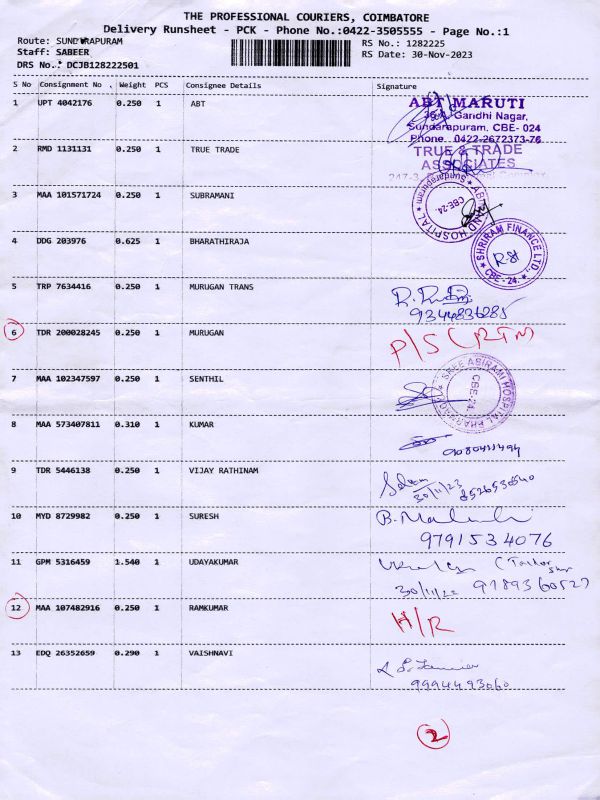 THE PROFESSIONAL COURIERS, COIMBATORE
Delivery Runsheet - PCK - Phone No.:0422-3505555 - Page No.:1
Route: SUNDARAPURAM
Staff: SABEER
DRS No.: DCJB128222501
RS No.: 1282225
RS Date: 30-Nov-2023
S No Consignment No . Weight PCS Consignee Details Signature
1 UPT 4042176 0.250 1 ABT
ABT MARUTI
Gandhi Nagar,
Sundarapuram, CBE- 024
Phone. 0422-2672373-76
2 RMD 1131131 0.250 1 TRUE TRADE
TRUE & TRADE
ASSOCIATES
3 MAA 101571724 0.250 1 SUBRAMANI
HOSPITAL
Sundarapuram
CBE-24.
4 DDG 203976 0.625 1 BHARATHIRAJA
SHRIRAM FINANCE LTD.,
CBE - 24.
5 TRP 7634416 0.250 1 MURUGAN TRANS
9344836285
6 TDR 200028245 0.250 1 MURUGAN
P/S (RTM)
7 MAA 102347597 0.250 1 SENTHIL
SREE ABIRAMI HOSPITAL
CBE-24.
8 MAA 573407811 0.310 1 KUMAR
9 TDR 5446138 0.250 1 VIJAY RATHINAM
30/11/23 8526530540
10 MYD 8729982 0.250 1 SURESH
9791534076
11 GPM 5316459 1.540 1 UDAYAKUMAR
9789360527
12 MAA 107482916 0.250 1 RAMKUMAR
H/R
13 EDQ 26352659 0.290 1 VAISHNAVI
9994493060
2